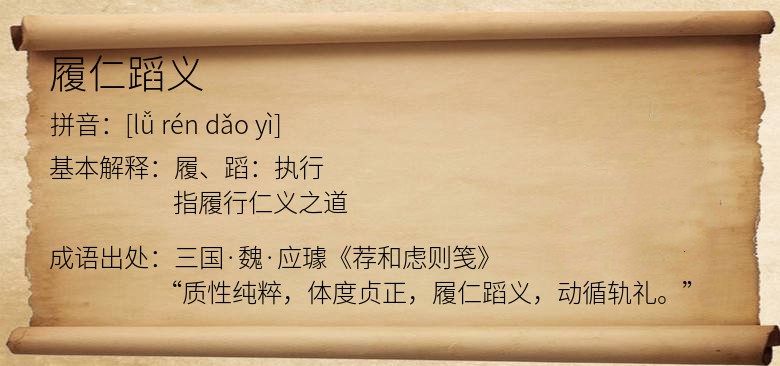 履仁蹈义
拼音：[lǚ rén dǎo yì]
基本解释：履、蹈：执行
指履行仁义之道
成语出处：三国·魏·应璩《荐和虑则笺》
“质性纯粹，体度贞正，履仁蹈义，动循轨礼。”